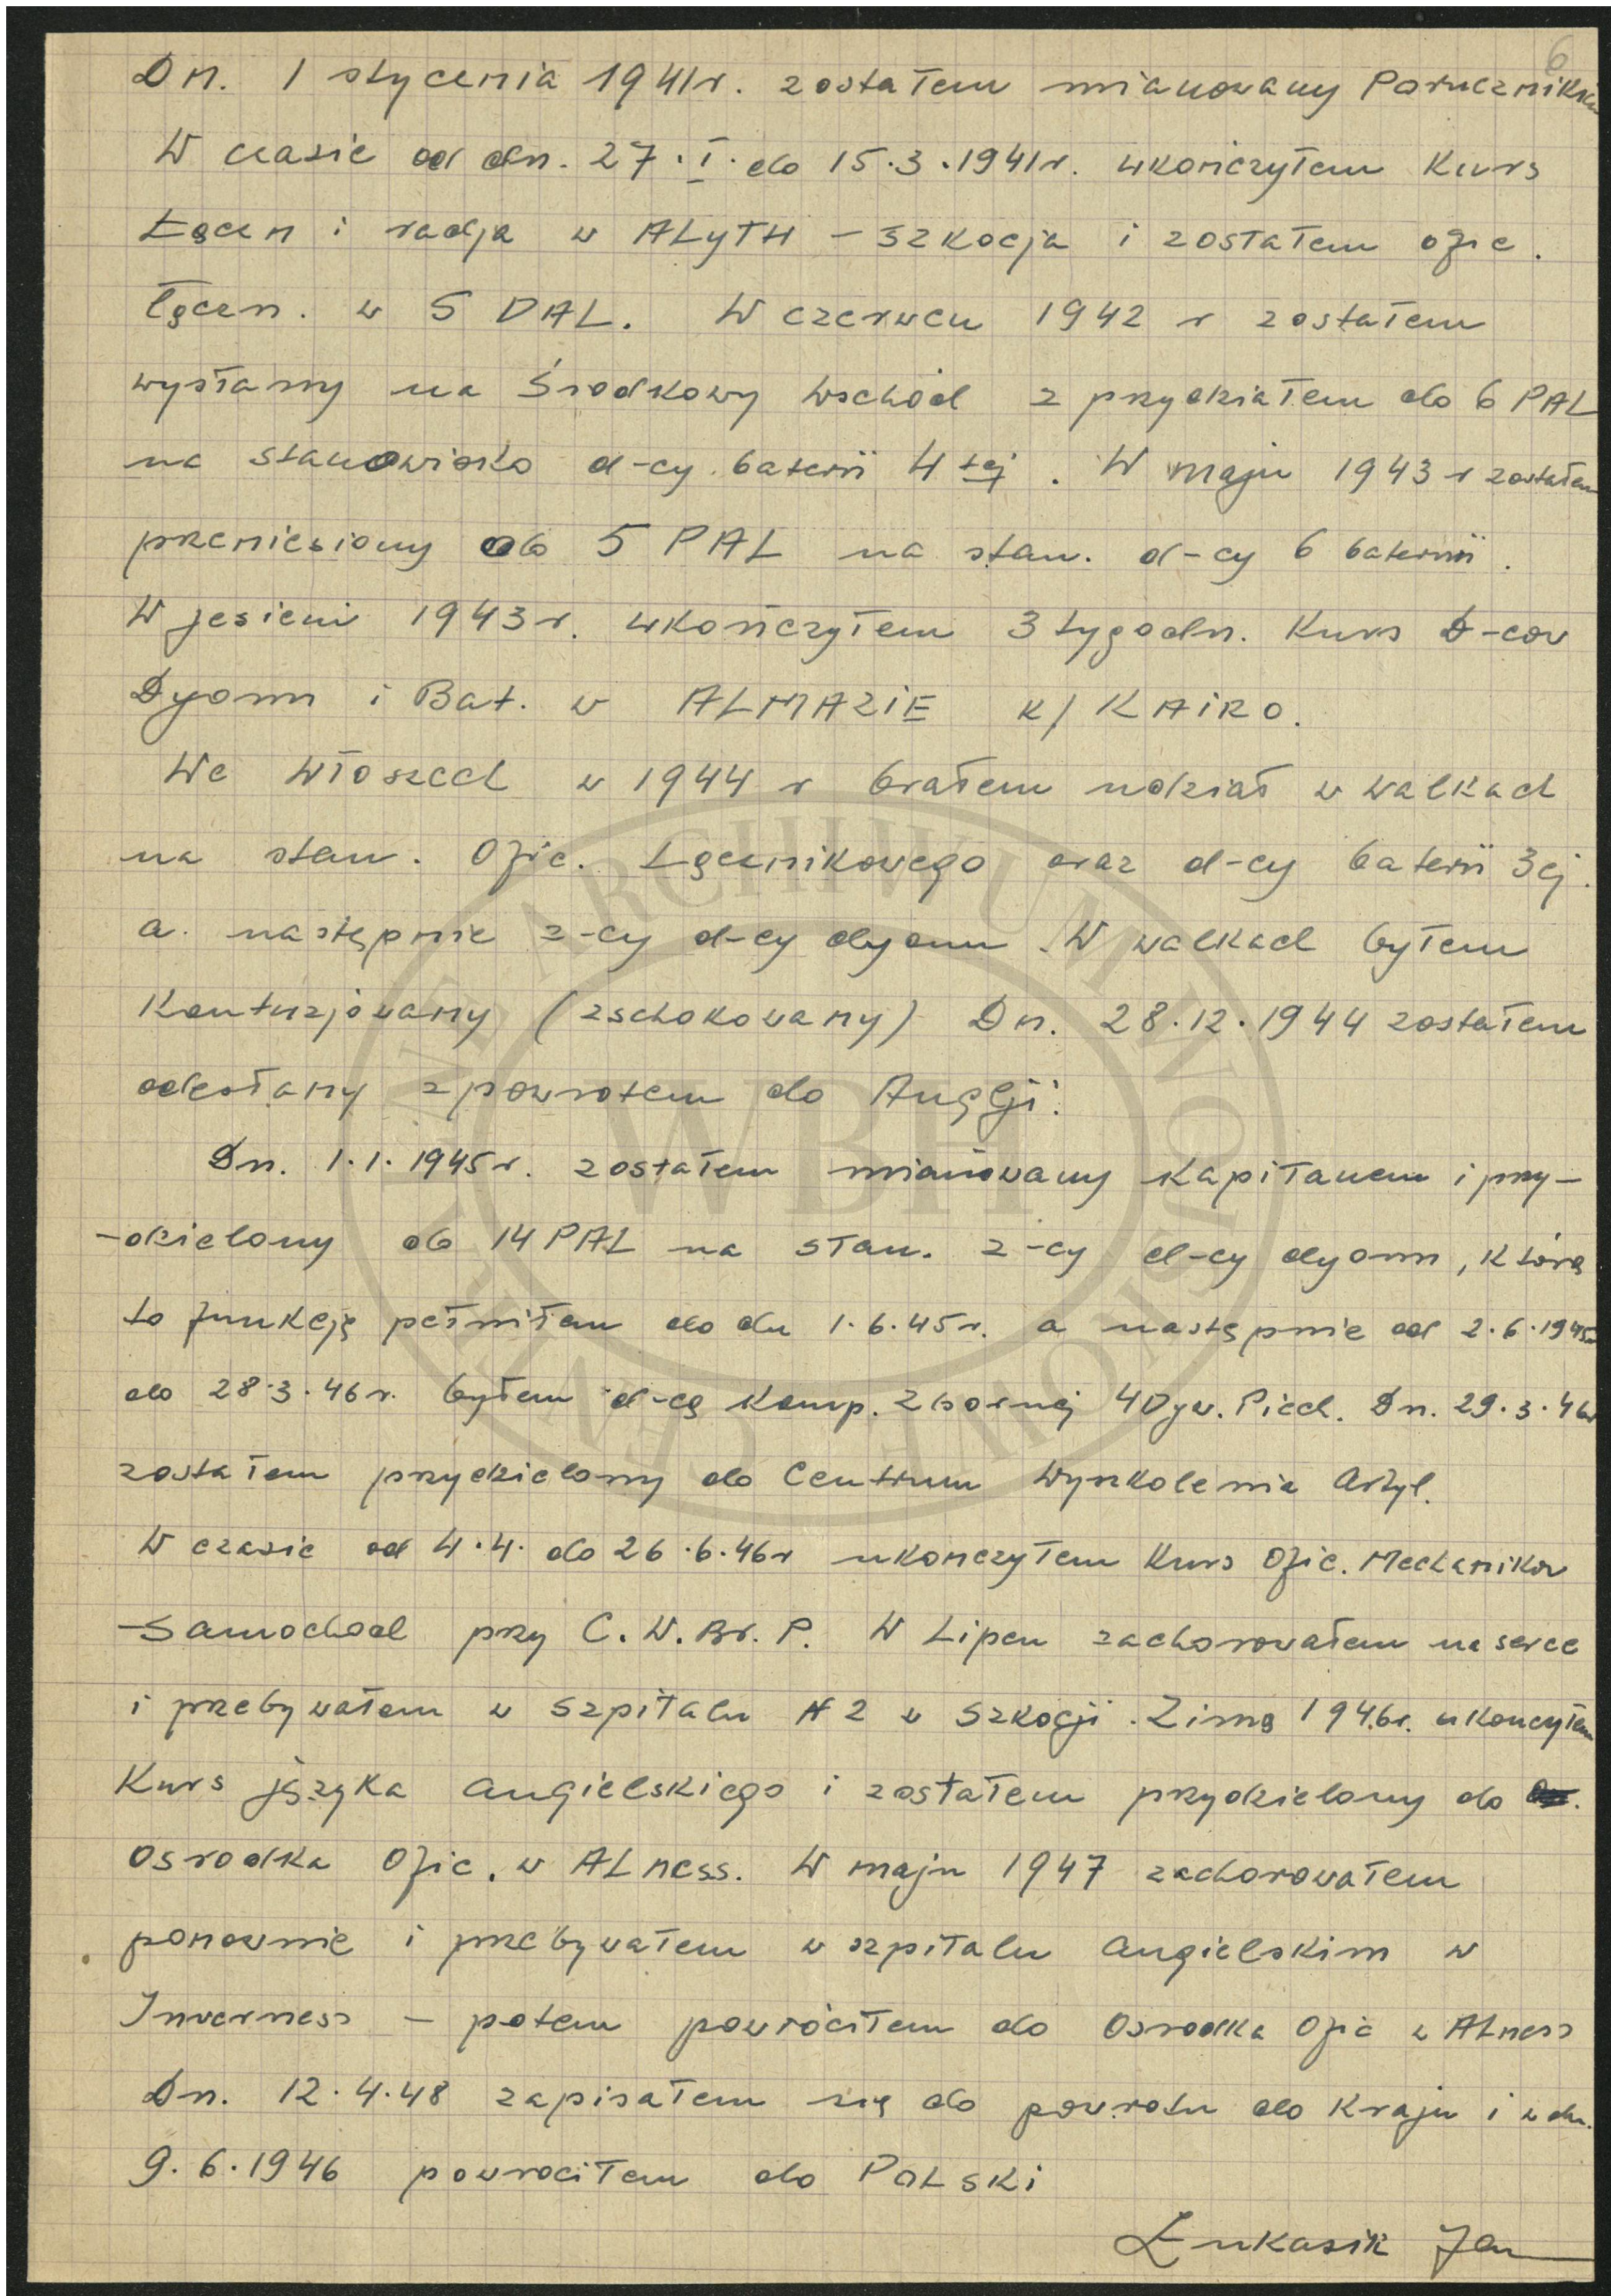 6
Dn. 1 stycznia 1941r. zostałem mianowany Porucznikiem
W czasie od dn. 27.I. do 15.3.1941r. ukończyłem Kurs
Łączn i radja w ALyTH – Szkocja i zostałem ofic.
łączn. w 5 DAL. W czerwcu 1942 r zostałem
wysłany na Środkowy Wschód z przydziałem do 6 PAL
na stanowisko d-cy baterii 4tej. W maju 1943 r zostałem
przeniesiony do 5 PAL na stan. d-cy 6 baterii.
W jesieni 1943r. ukończyłem 3 tygodn. Kurs D-cow
Dyonu i Bat. w ALMAZIE k/KAIRO.
We Włoszech w 1944 r brałem udział w walkach
na stan. Ofic. Łącznikowego oraz d-cy baterii 3ej.
a następnie z-cy d-cy dyonu. W walkach byłem
Kontuzjowany (zschokowany) Dn. 28.12.1944 zostałem
odesłany zpowrotem do Anglji.
Dn. 1.1.1945r. zostałem mianowany Kapitanem i przy-
-dzielony do 14 PAL na stan. z-cy d-cy dyonu, którą
to funkcję pełniłem do dn 1.6.45r. a następnie od 2.6.1945r
do 28.3.46r. byłem d-cą Komp. Zbornej 4 Dyw. Piech. Dn. 29.3.46r
zostałem przydzielony do Centrum Wyszkolenia Artyl.
W czasie od 4.4. do 26.6.46r ukonczyłem Kurs Ofic. Mechaników
-Samochod przy C.W.Br.P. W Lipcu zachorowałem na serce
i przebywałem w Szpitalu N 2 w Szkocji. Zimą 1946r. ukonczyłem
Kurs języka angielskiego i zostałem przydzielony do
Osrodka Ofic. w ALness. W maju 1947 zachorowałem
ponownie i przebywałem w szpitalu angielskim w
Inverness – potem powróciłem do Osrodka Ofic w ALness
Dn. 12.4.48 zapisałem się do powrotu do Kraju i w dn.
9.6.1946 powrociłem do POLSKi
Łukasik Jan
WBH